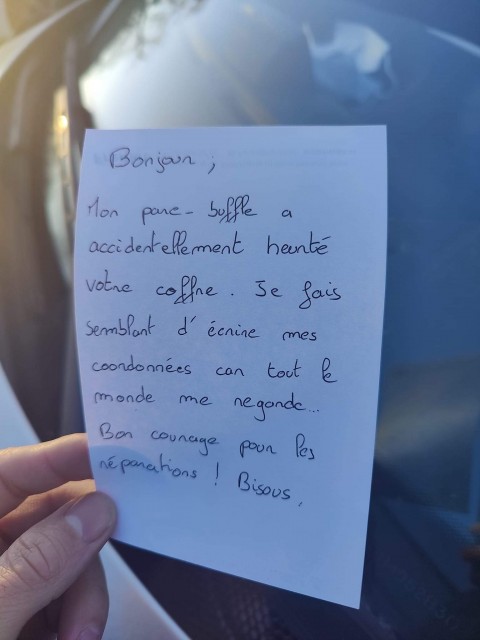 Bonjour ;
Mon pare-buffle a
accidentellement heurté
votre coffre. Je fais
semblant d'écrire mes
coordonnées car tout le
monde me regarde...
Bon courage pour les
réparations ! Bisous.